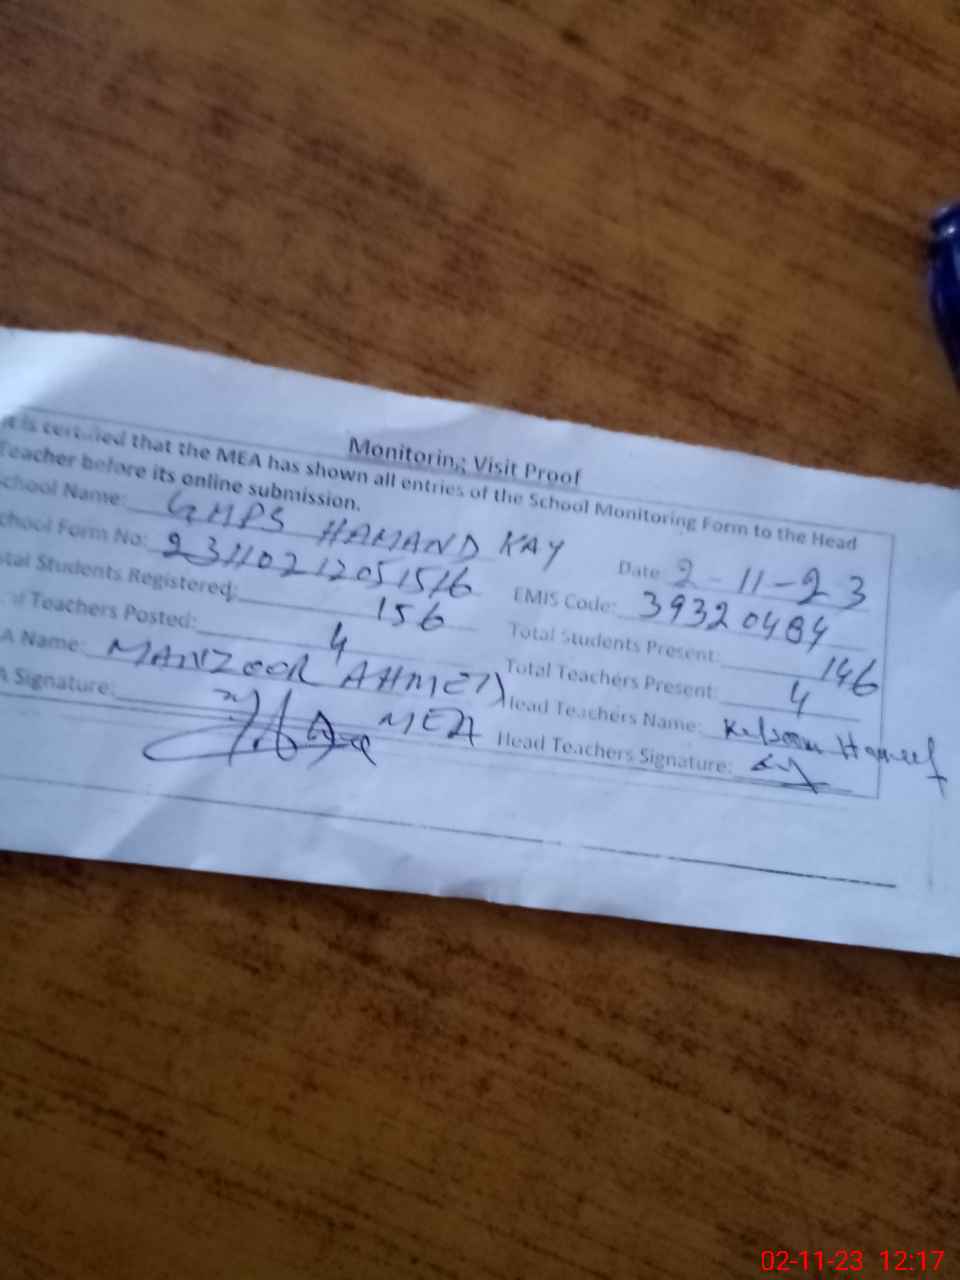 Monitoring Visit Proof
It is certified that the MEA has shown all entries of the School Monitoring Form to the Head
Teacher before its online submission.
School Name: GMPS HAMAND KAY Date 2-11-23
School Form No: EMIS Code: 39320484
tal Students Registered: 156 Total Students Present: 146
of Teachers Posted: 4 Total Teachers Present: 4
A Name: MANZOOR AHMED Head Teachers Name: Kalsoom Haneef
A Signature: MEA Head Teachers Signature:
02-11-23 12:17